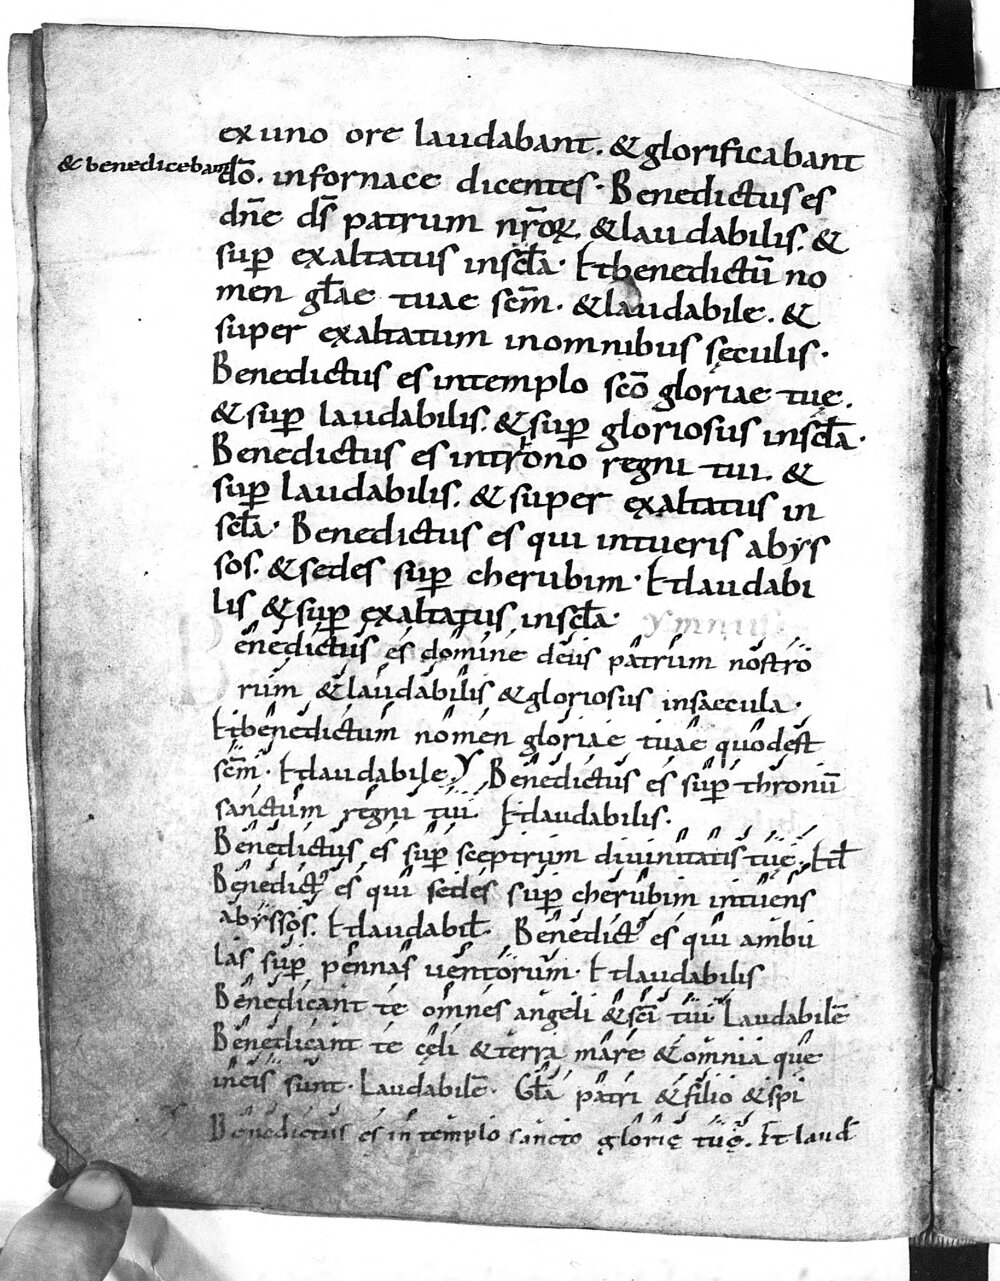 ex uno ore laudabant. & glorificabant
& benedicebant
dō. infornace dicentes. Benedictus es
dn̄e ds̄ patrum nr̄oꝝ. & laudabilis. &
suꝑ exaltatus insc̄la. Et benedictū no
men gl̄ae tuae sc̄m. & laudabile. &
super exaltatum inomnibus sęculis.
Benedictus es intemplo sc̄o gloriae tuę.
& suꝑ laudabilis. & suꝑ gloriosus insc̄la.
Benedictus es introno regni tui. &
suꝑ laudabilis. & super exaltatus in
sc̄la. Benedictus es qui intueris abys
sos. & sedes suꝑ cherubim. Et laudabi
lis & suꝑ exaltatus insc̄la.
ymnus
Benedictus es domine deus patrum nostro
rum & laudabilis & gloriosus insaecula.
Et benedictum nomen gloriae tuae quodest
sc̄m. Et laudabile. Y Benedictus es suꝑ thronū
sanctum regni tui. Et laudabilis.
Benedictus es suꝑ sceptrum divinitatis tuę. Et l̄
Benedict' es qui sedes suꝑ cherubim intuens
abyssos. Et laudabil̄. Benedict' es qui ambu
las suꝑ pennas uentorum. Et laudabilis
Benedicant te omnes angeli & sc̄i tui Laudabilē
Benedicant te cęli & terra mare & omnia quę
ineis sunt. Laudabilē. Gl̄a patri & filio & spi
Benedictus es in templo sancto glorię tuę. Et laud̄